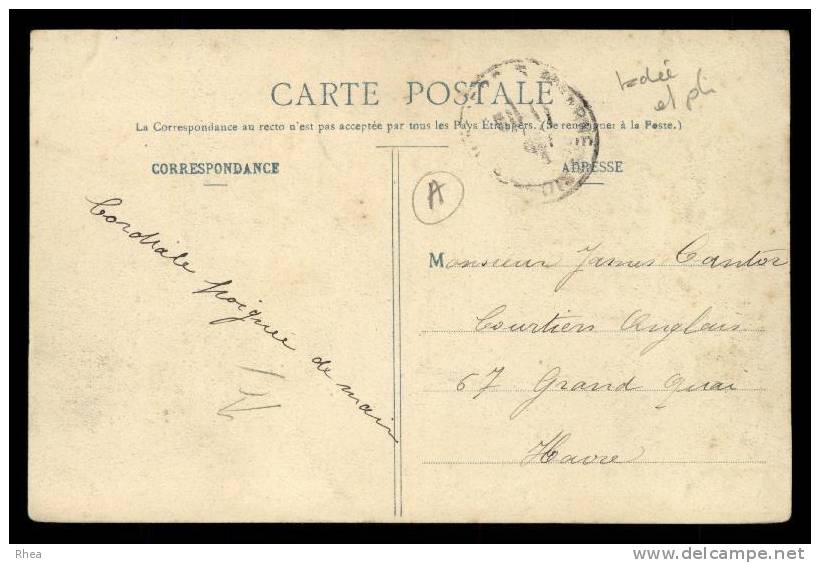 CARTE POSTALE
La Correspondance au recto n'est pas acceptée par tous les Pays Étrangers. (Se renseigner à la Poste.)
CORRESPONDANCE
ADRESSE
A
Cordiale poignée de main
Monsieur James Cantor
Courtiers Anglais
67 Grand Quai
Havre
et pli
Rhea
www.delcampe.net